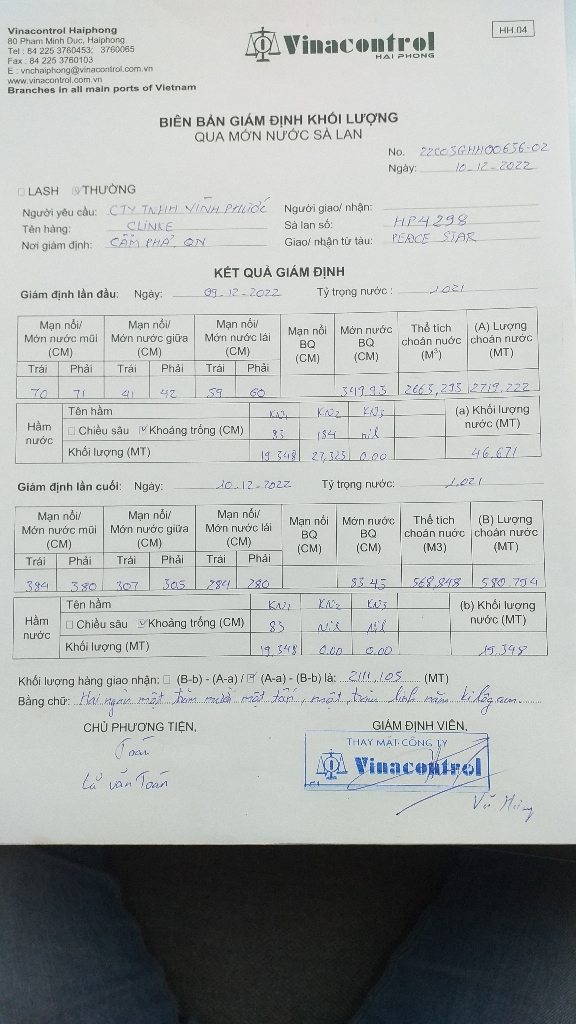 Vinacontrol Haiphong
80 Pham Minh Duc, Haiphong
Tel : 84 225 3760453; 3760065
Fax : 84 225 3760103
E : vnchaiphong@vinacontrol.com.vn
www.vinacontrol.com.vn
Branches in all main ports of Vietnam
Vinacontrol
HAI PHONG
HH.04
BIÊN BẢN GIÁM ĐỊNH KHỐI LƯỢNG
QUA MỚN NƯỚC SÀ LAN
No. 22C03GHH00656-02
Ngày: 10-12-2022
LASH THƯỜNG
Người yêu cầu: CTY TNHH VĨNH PHƯỚC
Người giao/ nhận:
Tên hàng: CLINKE
Sà lan số: HP4298
Nơi giám định: CẨM PHẢ, QN
Giao/ nhận từ tàu: PEACE STAR
KẾT QUẢ GIÁM ĐỊNH
Giám định lần đầu: Ngày: 09-12-2022 Tỷ trọng nước : 1.021
Mạn nổi/ Mớn nước mũi (CM) Mạn nổi/ Mớn nước giữa (CM) Mạn nổi/ Mớn nước lái (CM) Mạn nổi BQ (CM) Mớn nước BQ (CM) Thể tích choán nước (M³) (A) Lượng choán nước (MT)
Trái Phải Trái Phải Trái Phải
70 71 41 42 59 60 349.93 2663,293 2719,222
Hầm nước Tên hầm KN1 KN2 KN3 (a) Khối lượng nước (MT)
Chiều sâu Khoảng trống (CM) 83 184 nil
Khối lượng (MT) 19,348 27,323 0.00 46,671
Giám định lần cuối: Ngày: 10-12-2022 Tỷ trọng nước: 1.021
Mạn nổi/ Mớn nước mũi (CM) Mạn nổi/ Mớn nước giữa (CM) Mạn nổi/ Mớn nước lái (CM) Mạn nổi BQ (CM) Mớn nước BQ (CM) Thể tích choán nước (M3) (B) Lượng choán nước (MT)
Trái Phải Trái Phải Trái Phải
384 380 307 305 284 280 83.45 568,848 580.794
Hầm nước Tên hầm KN1 KN2 KN3 (b) Khối lượng nước (MT)
Chiều sâu Khoảng trống (CM) 83 Nil Nil
Khối lượng (MT) 19,348 0.00 0.00 19,348
Khối lượng hàng giao nhận: (B-b) - (A-a) / (A-a) - (B-b) là: 2111,105 (MT)
Bằng chữ: Hai ngàn một trăm mười một tấn, một trăm linh năm kilôgam.
CHỦ PHƯƠNG TIỆN,
GIÁM ĐỊNH VIÊN,
Toán
Lã Văn Toán
THAY MẶT CÔNG TY
Vinacontrol